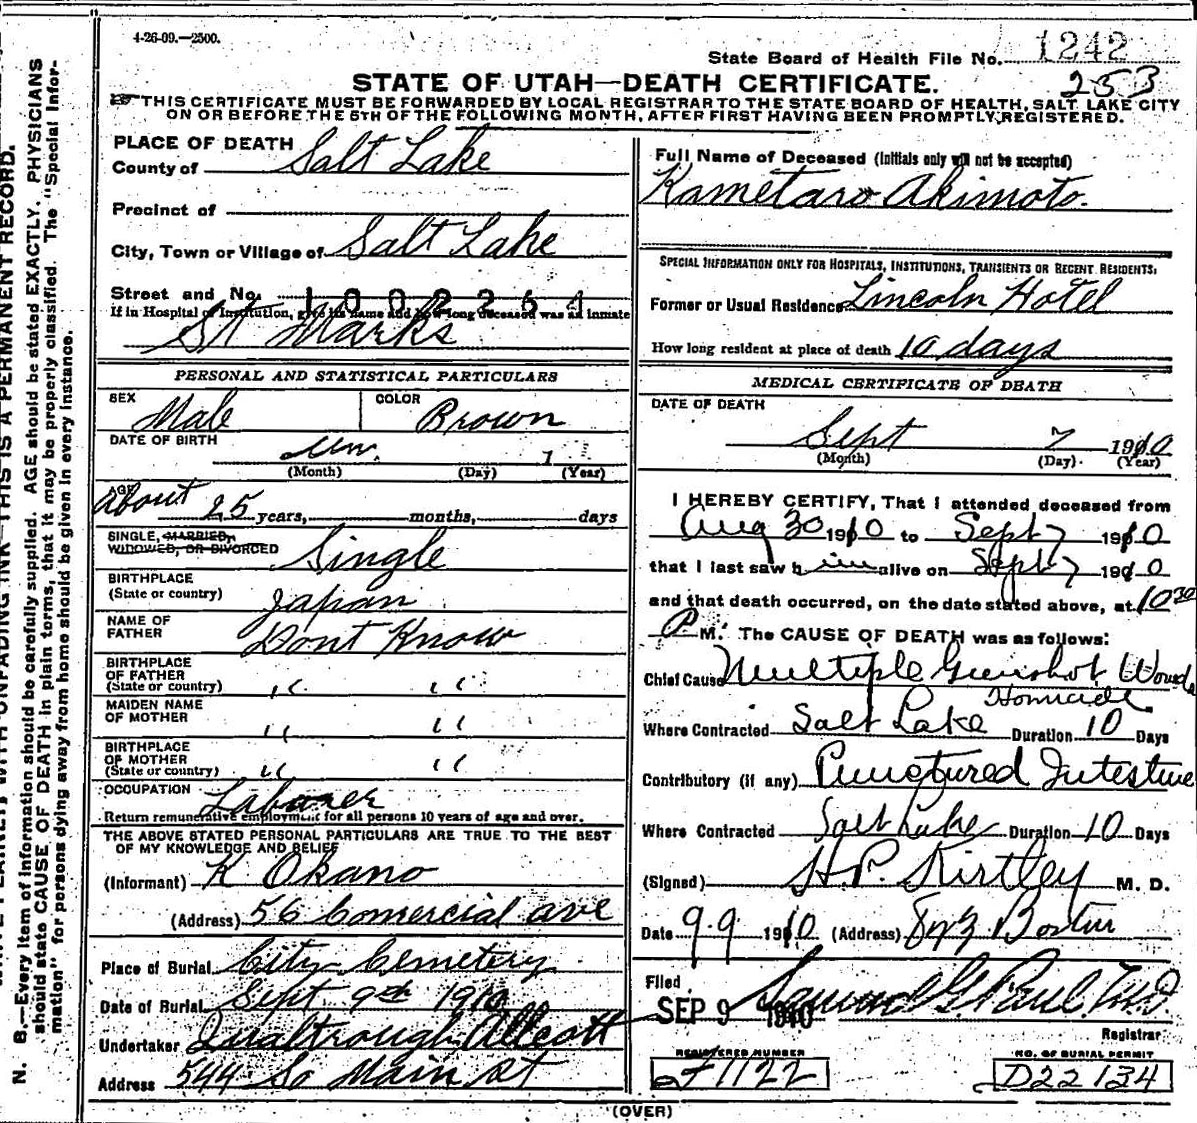 4-26-09.—2500.
State Board of Health File No. 1242
253
STATE OF UTAH—DEATH CERTIFICATE.
THIS CERTIFICATE MUST BE FORWARDED BY LOCAL REGISTRAR TO THE STATE BOARD OF HEALTH, SALT LAKE CITY
ON OR BEFORE THE 5TH OF THE FOLLOWING MONTH, AFTER FIRST HAVING BEEN PROMPTLY REGISTERED.
PLACE OF DEATH
County of Salt Lake
Precinct of
City, Town or Village of Salt Lake
Street and No. 1002264
If in Hospital or Institution, give its name and how long deceased was an inmate
St Marks
PERSONAL AND STATISTICAL PARTICULARS
SEX Male COLOR Brown
DATE OF BIRTH Unn. 1
(Month) (Day) (Year)
AGE About 25 years, months, days
SINGLE, MARRIED,
WIDOWED, OR DIVORCED Single
BIRTHPLACE
(State or country) Japan
NAME OF
FATHER Dont Know
BIRTHPLACE
OF FATHER
(State or country) " "
MAIDEN NAME
OF MOTHER " "
BIRTHPLACE
OF MOTHER
(State or country) " "
OCCUPATION Laborer
Return remunerative employment for all persons 10 years of age and over.
THE ABOVE STATED PERSONAL PARTICULARS ARE TRUE TO THE BEST
OF MY KNOWLEDGE AND BELIEF
(Informant) K Okano
(Address) 56 Comercial ave
Place of Burial City Cemetery
Date of Burial Sept 9th 1910
Undertaker Qualtrough Allcott
Address 544 So Main St
Full Name of Deceased (Initials only will not be accepted)
Kametaro Akimoto.
SPECIAL INFORMATION ONLY FOR HOSPITALS, INSTITUTIONS, TRANSIENTS OR RECENT RESIDENTS.
Former or Usual Residence Lincoln Hotel
How long resident at place of death 10 days
MEDICAL CERTIFICATE OF DEATH
DATE OF DEATH
Sept 7 1910
(Month) (Day) (Year)
I HEREBY CERTIFY, That I attended deceased from
Aug 30 1910 to Sept 7 1910
that I last saw him alive on Sept 7 1910
and that death occurred, on the date stated above, at 10 30
P M. The CAUSE OF DEATH was as follows:
Chief Cause Multiple Gunshot Wounds
Homicide
Where Contracted Salt Lake Duration 10 Days
Contributory (if any) Punctured Intestine
Where Contracted Salt Lake Duration 10 Days
(Signed) H.P. Kirtley M. D.
Date 9-9 1910 (Address) Boston
Filed
SEP 9 1910 Samuel G. Paul M.D.
Registrar
REGISTERED NUMBER
1122
NO. OF BURIAL PERMIT
D22134
(OVER)
N. B.—Every item of information should be carefully supplied. AGE should be stated EXACTLY. PHYSICIANS
should state CAUSE OF DEATH in plain terms, that it may be properly classified. The "Special Infor-
mation" for persons dying away from home should be given in every instance.
WRITE PLAINLY WITH UNFADING INK—THIS IS A PERMANENT RECORD.